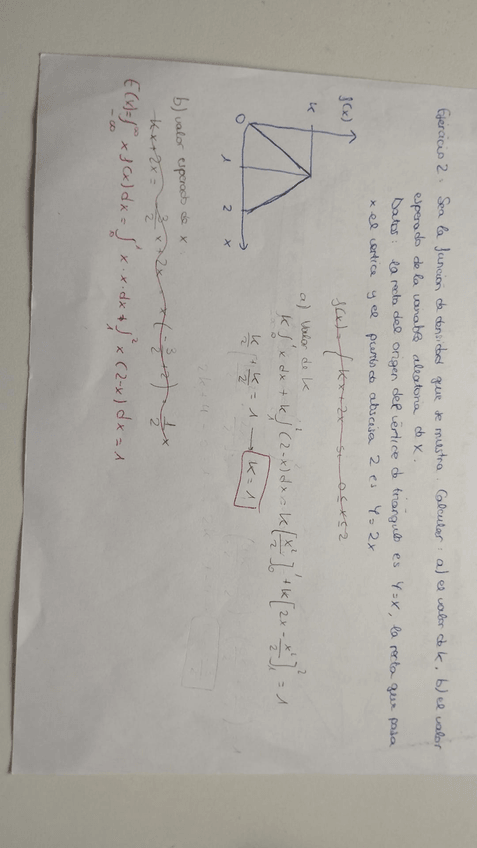 Ejercicio 2: Sea la función de densidad que se muestra. Calcular: a) el valor de k, b) el valor
esperado de la variable aleatoria de X.
Datos: la recta del origen del vértice de triángulo es Y=x, la recta que pasa
x el vértice y el punto de abscisa 2 es Y=2x
f(x)
k
0
1
2
x
f(x)= { kx+2x si 0≤x≤2
a) Valor de k
k∫₀¹ x dx + k∫₁² (2-x)dx = k[x²/2]₀¹ + k[2x - x²/2]₁² = 1
k/2 + k/2 = 1 → k=1
b) valor esperado de x.
kx+2x = 3/2 x+2x x(-3/2+2) = 1/2 x
E(x)=∫₋∞^∞ x f(x) dx = ∫₀¹ x·x·dx + ∫₁² x(2-x)dx = 1